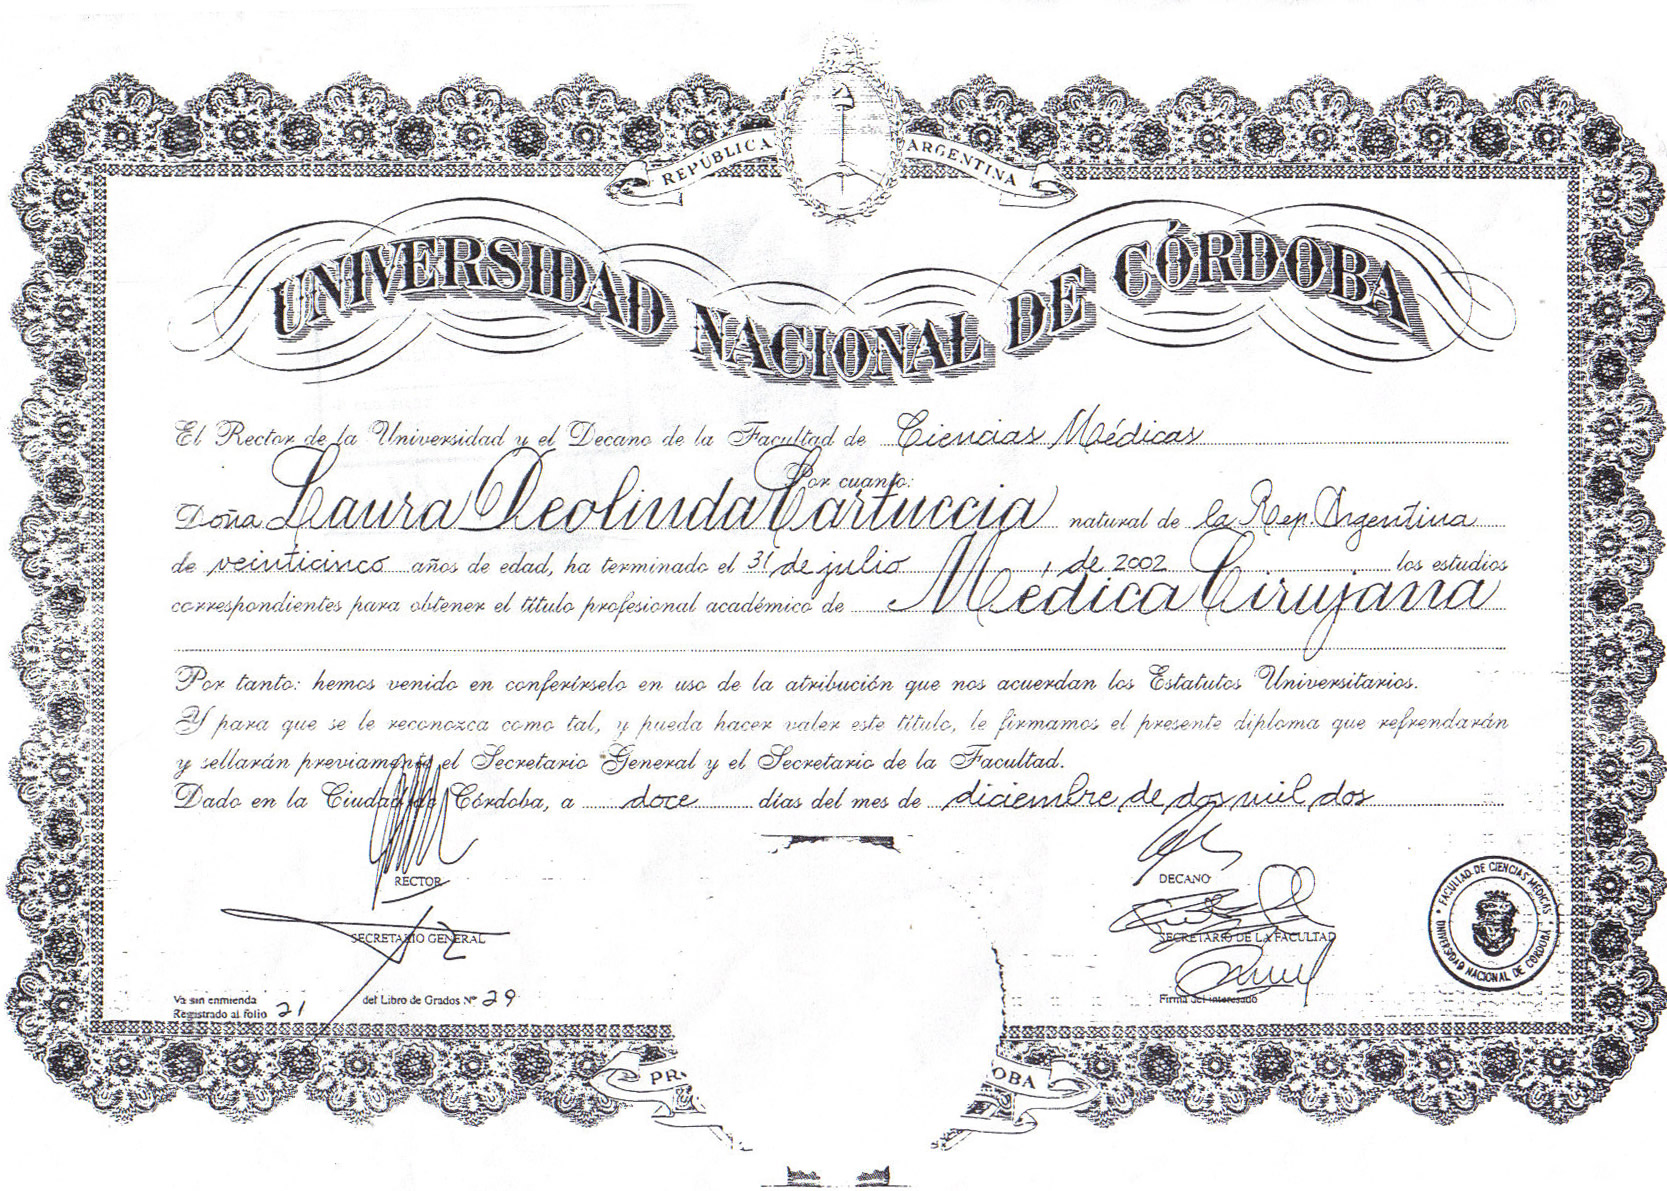 REPÚBLICA ARGENTINA
UNIVERSIDAD NACIONAL DE CÓRDOBA
El Rector de la Universidad y el Decano de la Facultad de Ciencias Médicas
Por cuanto:
Doña Laura Deolinda Cartuccia natural de la Rep. Argentina
de veinticinco años de edad, ha terminado el 31 de julio, de 2002 los estudios
correspondientes para obtener el título profesional académico de Médica Cirujana
Por tanto: hemos venido en conferírselo en uso de la atribución que nos acuerdan los Estatutos Universitarios.
Y para que se le reconozca como tal, y pueda hacer valer este título, le firmamos el presente diploma que refrendarán
y sellarán previamente el Secretario General y el Secretario de la Facultad.
Dado en la Ciudad de Córdoba, a doce días del mes de diciembre de dos mil dos
RECTOR
DECANO
SECRETARIO GENERAL
SECRETARIO DE LA FACULTAD
FACULTAD DE CIENCIAS MÉDICAS
UNIVERSIDAD NACIONAL DE CÓRDOBA
Va sin enmienda
Registrado al folio 21 del Libro de Grados Nº 29
Firma del interesado
PR OBA